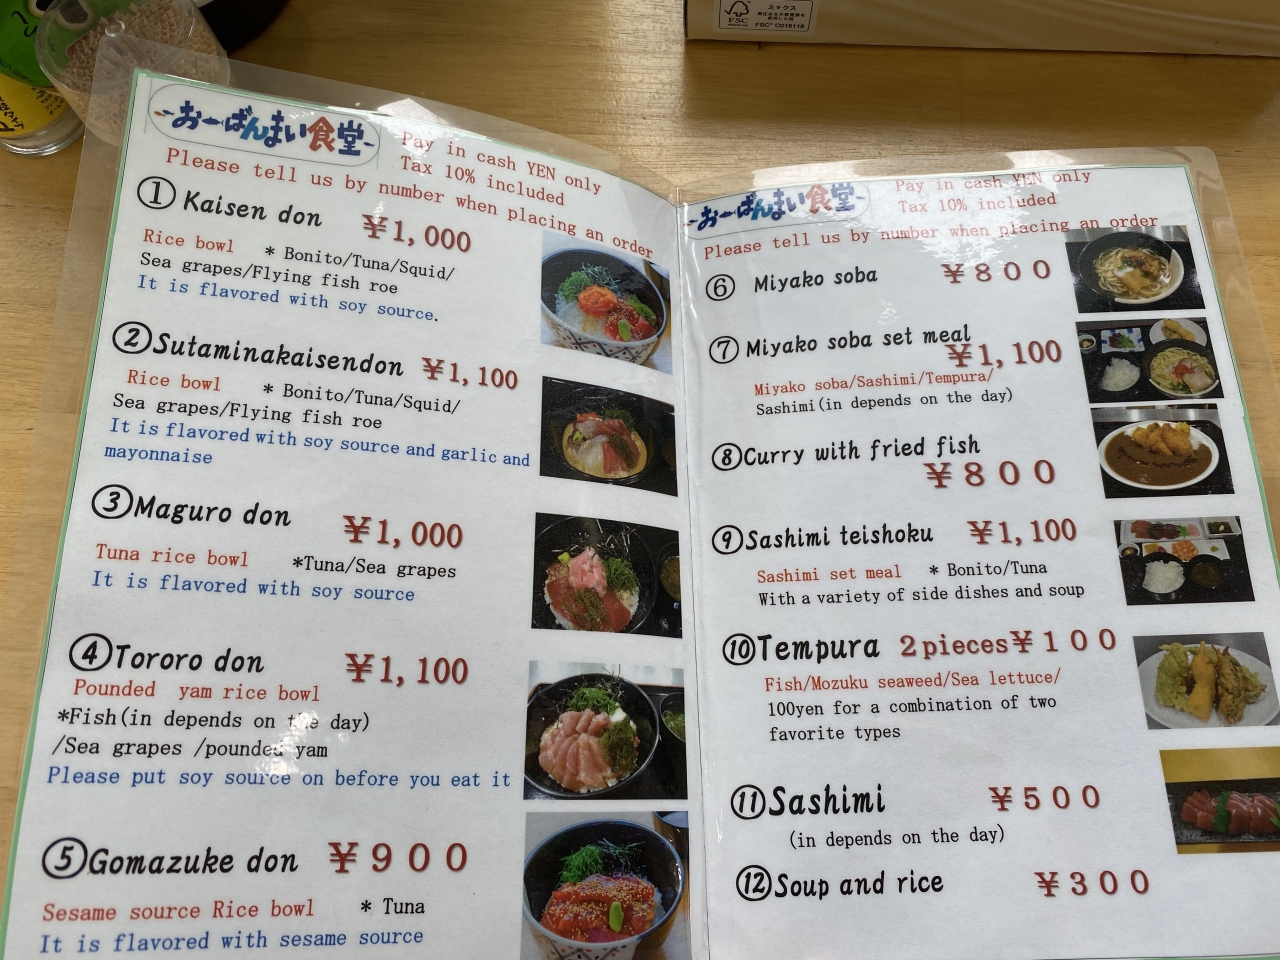 ミックス
FSC
FSC® C018118
おーばんまい食堂
Pay in cash YEN only
Tax 10% included
Please tell us by number when placing an order
① Kaisen don ￥1,000
Rice bowl * Bonito/Tuna/Squid/
Sea grapes/Flying fish roe
It is flavored with soy source.
② Sutaminakaisendon ￥1,100
Rice bowl * Bonito/Tuna/Squid/
Sea grapes/Flying fish roe
It is flavored with soy source and garlic and
mayonnaise
③ Maguro don ￥1,000
Tuna rice bowl *Tuna/Sea grapes
It is flavored with soy source
④ Tororo don ￥1,100
Pounded yam rice bowl
*Fish(in depends on the day)
/Sea grapes /pounded yam
Please put soy source on before you eat it
⑤ Gomazuke don ￥900
Sesame source Rice bowl * Tuna
It is flavored with sesame source
おーばんまい食堂
Pay in cash YEN only
Tax 10% included
Please tell us by number when placing an order
⑥ Miyako soba ￥800
⑦ Miyako soba set meal
￥1,100
Miyako soba/Sashimi/Tempura/
Sashimi(in depends on the day)
⑧ Curry with fried fish
￥800
⑨ Sashimi teishoku ￥1,100
Sashimi set meal * Bonito/Tuna
With a variety of side dishes and soup
⑩ Tempura 2pieces￥100
Fish/Mozuku seaweed/Sea lettuce/
100yen for a combination of two
favorite types
⑪ Sashimi ￥500
(in depends on the day)
⑫ Soup and rice ￥300